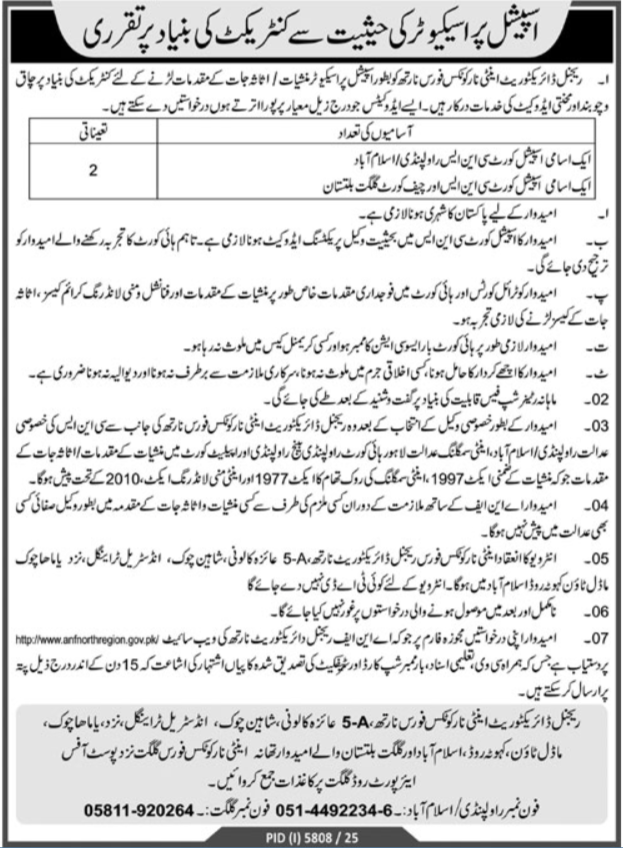 اسپیشل پراسیکیوٹر کی حیثیت سے کنٹریکٹ کی بنیاد پر تقرری
۱۔ ریجنل ڈائریکٹوریٹ اینٹی نارکوٹکس فورس نارتھ کو بطور اسپیشل پراسیکیوٹر منشیات / اثاثہ جات کے مقدمات لڑنے کے لئے کنٹریکٹ کی بنیاد پر چاق
و چوبند اور محنتی ایڈوکیٹ کی خدمات درکار ہیں۔ ایسے ایڈوکیٹس جو درج زیل معیار پر پورا اترتے ہوں درخواستیں دے سکتے ہیں۔
آسامیوں کی تعداد تعیناتی
ایک اسامی اسپیشل کورٹ سی این ایس راولپنڈی/ اسلام آباد
2
ایک اسامی اسپیشل کورٹ سی این ایس اور چیف کورٹ گلگت بلتستان
ا۔ امیدوار کے لیے پاکستان کا شہری ہونا لازمی ہے۔
ب۔ امیدوار کا اسپیشل کورٹ سی این ایس میں بحیثیت وکیل پریکٹسنگ ایڈوکیٹ ہونا لازمی ہے۔ تاہم ہائی کورٹ کا تجربہ رکھنے والے امیدوار کو
ترجیح دی جائے گی۔
پ۔ امیدوار کو ٹرائل کورٹس اور ہائی کورٹ میں فوجداری مقدمات خاص طور پر منشیات کے مقدمات اور فنانشل و منی لانڈرنگ کرائم کیسز، اثاثہ
جات کے کیسز لڑنے کی لازمی تجربہ ہو۔
ت۔ امیدوار لازمی طور پر ہائی کورٹ بار ایسوسی ایشن کا ممبر ہو اور کسی کریمنل کیس میں ملوث نہ رہا ہو۔
ٹ۔ امیدوار کا اچھے کردار کا حامل ہونا، کسی اخلاقی جرم میں ملوث نہ ہونا، سرکاری ملازمت سے برطرف نہ ہونا اور دیوالیہ نہ ہونا ضروری ہے۔
02۔ ماہانہ ریٹینر شپ فیس قابلیت کی بنیاد پر گفت و شنید کے بعد طے کی جائے گی۔
03۔ امیدوار کے بطور خصوصی وکیل کے انتخاب کے بعد وہ ریجنل ڈائریکٹوریٹ اینٹی نارکوٹکس فورس نارتھ کی جانب سے سی این ایس کی خصوصی
عدالت راولپنڈی/ اسلام آباد، اینٹی سمگلنگ عدالت لاہور ہائی کورٹ راولپنڈی بینچ راولپنڈی اور اپیلیٹ کورٹ میں منشیات کے مقدمات/ اثاثہ جات کے
مقدمات جو کہ منشیات کے ضمنی ایکٹ 1997، اینٹی سمگلنگ کی روک تھام کا ایکٹ 1977 اور اینٹی منی لانڈرنگ ایکٹ، 2010 کے تحت پیش ہوگا۔
04۔ امیدوار اے این ایف کے ساتھ ملازمت کے دوران کسی ملزم کی طرف سے کسی منشیات و اثاثہ جات کے مقدمہ میں بطور وکیل صفائی کسی
بھی عدالت میں پیش نہیں ہوگا۔
05۔ انٹرویو کا انعقاد اینٹی نارکوٹکس فورس ریجنل ڈائریکٹوریٹ نارتھ، 5-A عائزہ کالونی، شاہین چوک، انڈسٹریل ٹرائینگل، نزد یاماھا چوک
ماڈل ٹاؤن کہوٹہ روڈ اسلام آباد میں ہوگا۔ انٹرویو کے لئے کوئی ٹی اے ڈی نہیں دے جائے گا
06۔ نامکمل اور بعد میں موصول ہونے والی درخواستوں پر غور نہیں کیا جائے گا۔
07۔ امیدوار اپنی درخواستیں مجوزہ فارم پر جو کہ اے این ایف ریجنل دائریکٹوریٹ نارتھ کی ویب سائیٹ http://www.anfnorthregion.gov.pk/
پر دستیاب ہے جس کہ ہمراہ سی وی، تعلیمی اسناد، بار ممبر شپ کارڈ اور سرٹیفکیٹ کی تصدیق شدہ کاپیاں اشتہار کی اشاعت کہ 15 دن کے اندر درج ذیل پتہ
پر ارسال کر سکتے ہیں۔
ریجنل ڈائریکٹوریٹ اینٹی نارکوٹکس فورس نارتھ، 5-A عائزہ کالونی، شاہین چوک، انڈسٹریل ٹرائینگل، نزد، یاماھا چوک،
ماڈل ٹاؤن، کہوٹہ روڈ، اسلام آباد اور گلگت بلتستان والے امیدوار تھانہ اینٹی نارکوٹکس فورس گلگت نزد پوسٹ آفس
ایئرپورٹ روڈ گلگت پر کاغذات جمع کروائیں۔
فون نمبر راولپنڈی/ اسلام آباد:۔ 051-4492234-6 فون نمبر گلگت:۔ 05811-920264
PID (I) 5808 / 25